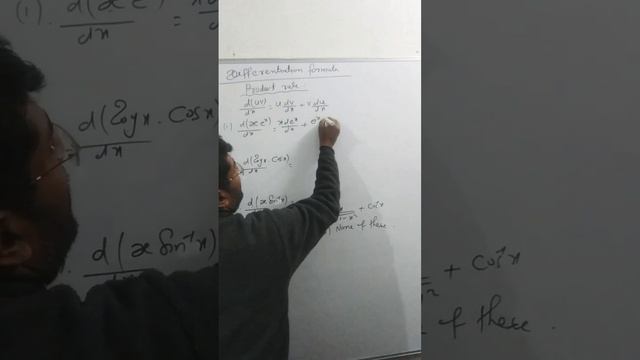 Differentiation formula
Product rule:
d(uv)/dx = u dv/dx + v du/dx
(i) d(x e^x)/dx = x de^x/dx + e^x
d(log x . cos x)/dx =
d(x sin⁻¹x) =
+ cos⁻¹x
None of these.